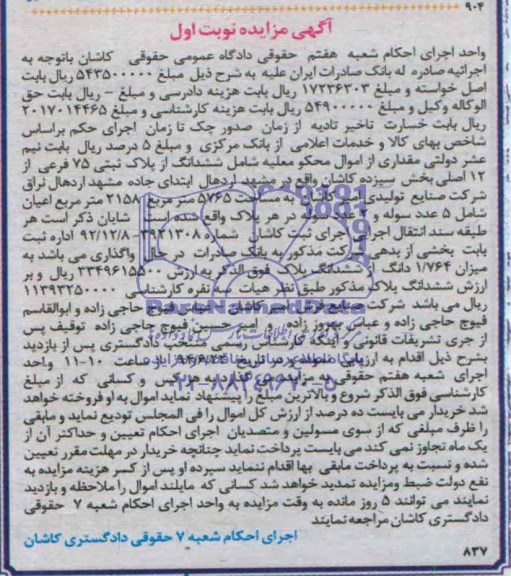 ۹۰۴
آگهی مزایده نوبت اول
واحد اجرای احکام شعبه هفتم حقوقی دادگاه عمومی حقوقی کاشان باتوجه به
اجرائیه صادره له بانک صادرات ایران علیه به شرح ذیل مبلغ ۵۴۳۵۰۰۰۰۰ ریال بابت
اصل خواسته و مبلغ ۱۷۲۳۶۳۰۳ ریال بابت هزینه دادرسی و مبلغ - ریال بابت حق
الوکاله وکیل و مبلغ ۵۴۹۰۰۰۰۰ ریال بابت هزینه کارشناسی و مبلغ ۲۰۱۷۰۱۴۴۶۵
ریال بابت خسارت تاخیر تادیه از زمان صدور چک تا زمان اجرای حکم براساس
شاخص بهای کالا و خدمات اعلامی از بانک مرکزی و مبلغ ۵ درصد ریال بابت نیم
عشر دولتی مقداری از اموال محکوم علیه شامل ششدانگ از پلاک ثبتی ۷۵ فرعی از
۱۲ اصلی بخش سیزده کاشان واقع در مشهد اردهال ابتدای جاده مشهد اردهال نراق
شرکت صنایع تولیدی کاشان به مساحت ۵۷۶۵ متر مربع ۲۱۵۸ متر مربع اعیان
شامل ۵ عدد سوله و ۲ عدد در هر پلاک واقع شده است شایان ذکر است هر
طبقه سند انتقال اجرایی اجرای ثبت کاشان شماره ۳۹۲۱۳۰۸ - ۹۲/۱۲/۸ اداره ثبت
بابت بخشی از بدهی شرکت مذکور به بانک صادرات در حال واگذاری می باشد به
میزان ۱/۷۶۴ دانگ از ششدانگ پلاک فوق الذکر به ارزش ۳۳۴۹۶۱۵۵۰۰ ریال و بر
ارزش ششدانگ پلاک مذکور طبق نظر هیات سه نفره کارشناسی ۱۱۳۹۳۲۵۰۰۰۰
ریال می باشد شرکت صنایع فرش کاشان عباس فیوج حاجی زاده و ابوالقاسم
فیوج حاجی زاده و عباس بهروز زاده و امیر حسین فیوج حاجی زاده توقیف پس
از جری تشریفات قانونی و اینکه کارشناس رسمی دادگستری پس از بازدید
بشرح ذیل اقدام به ارزیابی نموده در تاریخ ۹۴/۶/۲۴ از ساعت ۱۰-۱۱ واحد
اجرای شعبه هفتم حقوقی به مزایده می گذارد مزایده از کسانی که از مبلغ
کارشناسی فوق الذکر شروع و بالاترین مبلغ را پیشنهاد نماید اموال به او فروخته خواهد
شد خریدار می بایست ده درصد از ارزش کل اموال را فی المجلس تودیع نماید و مابقی
را ظرف مبلغی که از سوی مسولین و متصدیان اجرای احکام تعیین و حداکثر آن از
یک ماه تجاوز نمی کند می بایست پرداخت نماید چنانچه خریدار در مهلت مقرر تعیین
شده و نسبت به پرداخت مابقی بها اقدام ننماید سپرده او پس از کسر هزینه مزایده به
نفع دولت ضبط ومزایده تمدید خواهد شد کسانی که مایلند اموال را ملاحظه و بازدید
نمایند می توانند ۵ روز مانده به وقت مزایده به واحد اجرای احکام شعبه ۷ حقوقی
دادگستری کاشان مراجعه نمایند
اجرای احکام شعبه ۷ حقوقی دادگستری کاشان
۸۳۷
ParsNamadData
۰۲۱-۸۸۳۴۹۶۷۰-۵